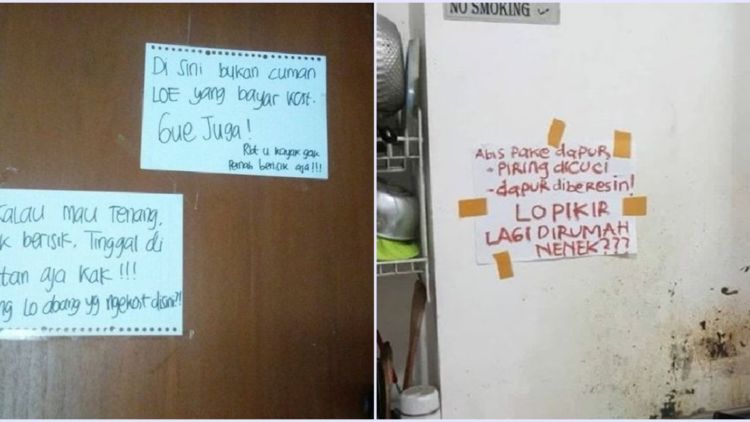 Di sini bukan cuman
LOE yang bayar kost.
Gue Juga!
kayak gak
Pernah berisik aja!!!
Kalau mau Tenang,
berisik. Tinggal di
aja kak!!!
Lo abang yg ngekost disini?!
NO SMOKING
Abis pake dapur,
- PIRING DICUCI
- dapur diberesin!
LO PIKIR
LAGI DIRUMAH
NENEK???